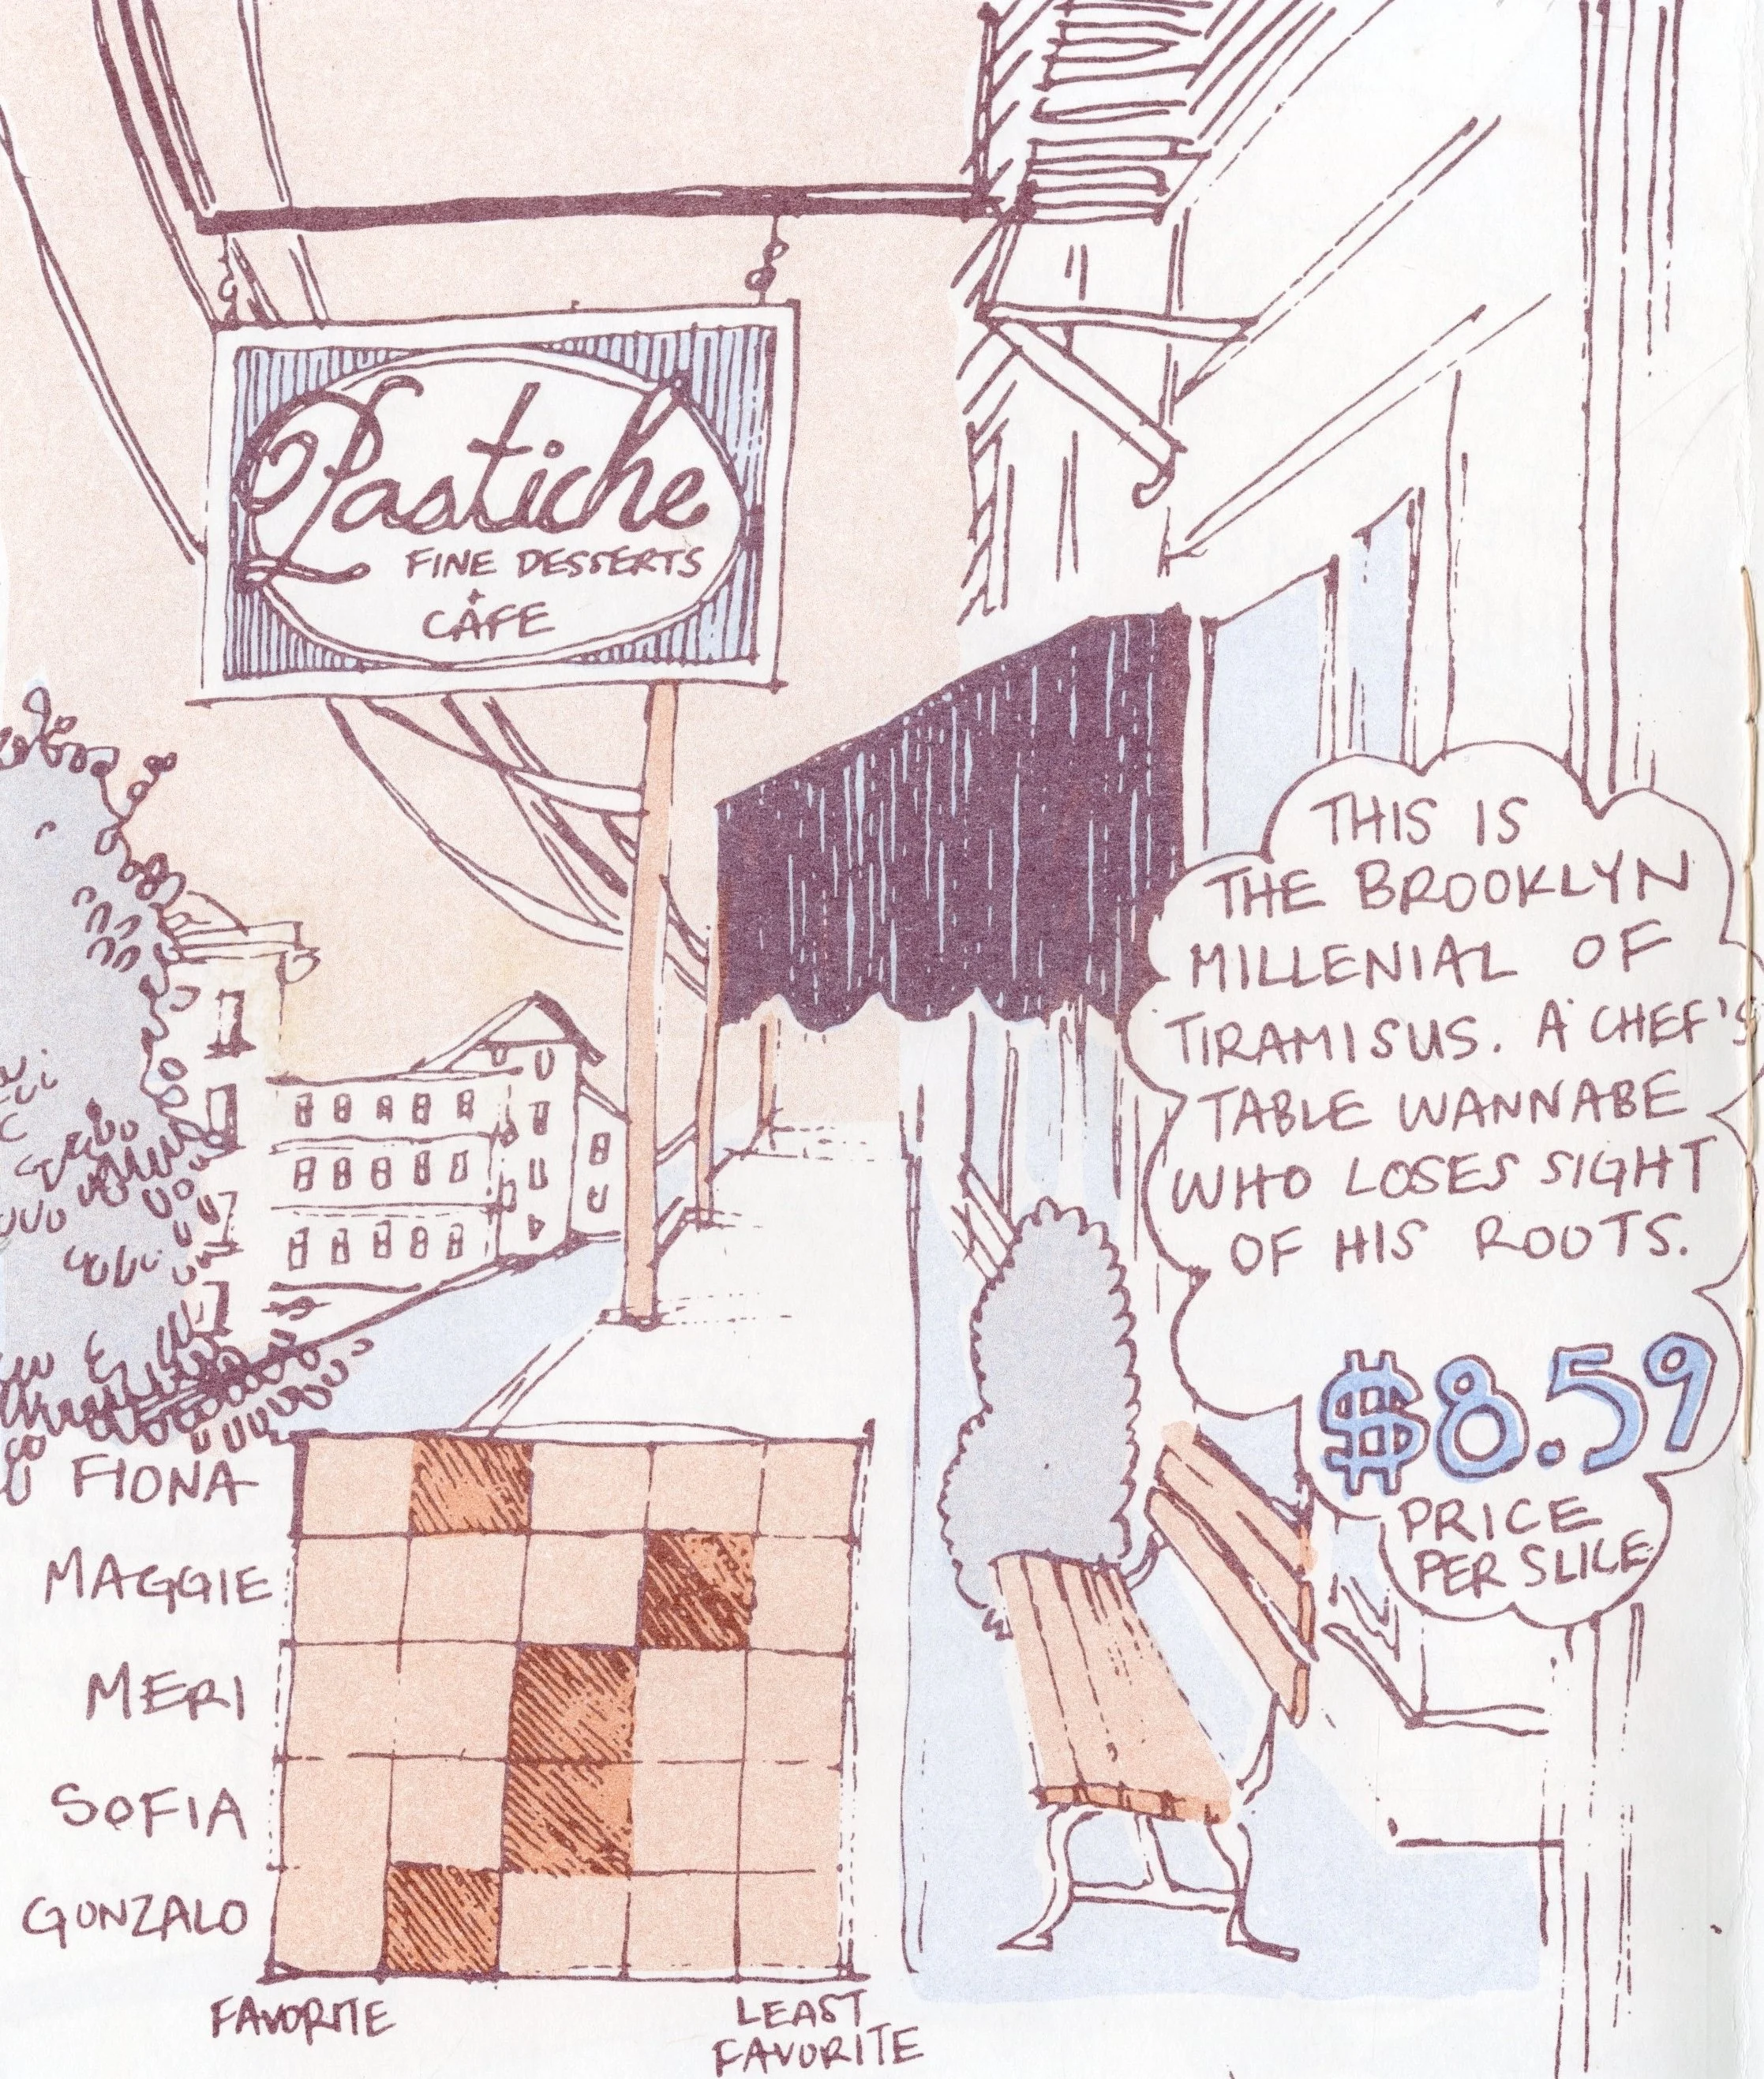 Pastiche
FINE DESSERTS
+
CAFE
THIS IS
THE BROOKLYN
MILLENIAL OF
TIRAMISUS. A CHEF'S
TABLE WANNABE
WHO LOSES SIGHT
OF HIS ROOTS.
$8.59
PRICE
PER SLICE
FIONA
MAGGIE
MERI
SOFIA
GONZALO
FAVORITE
LEAST
FAVORITE